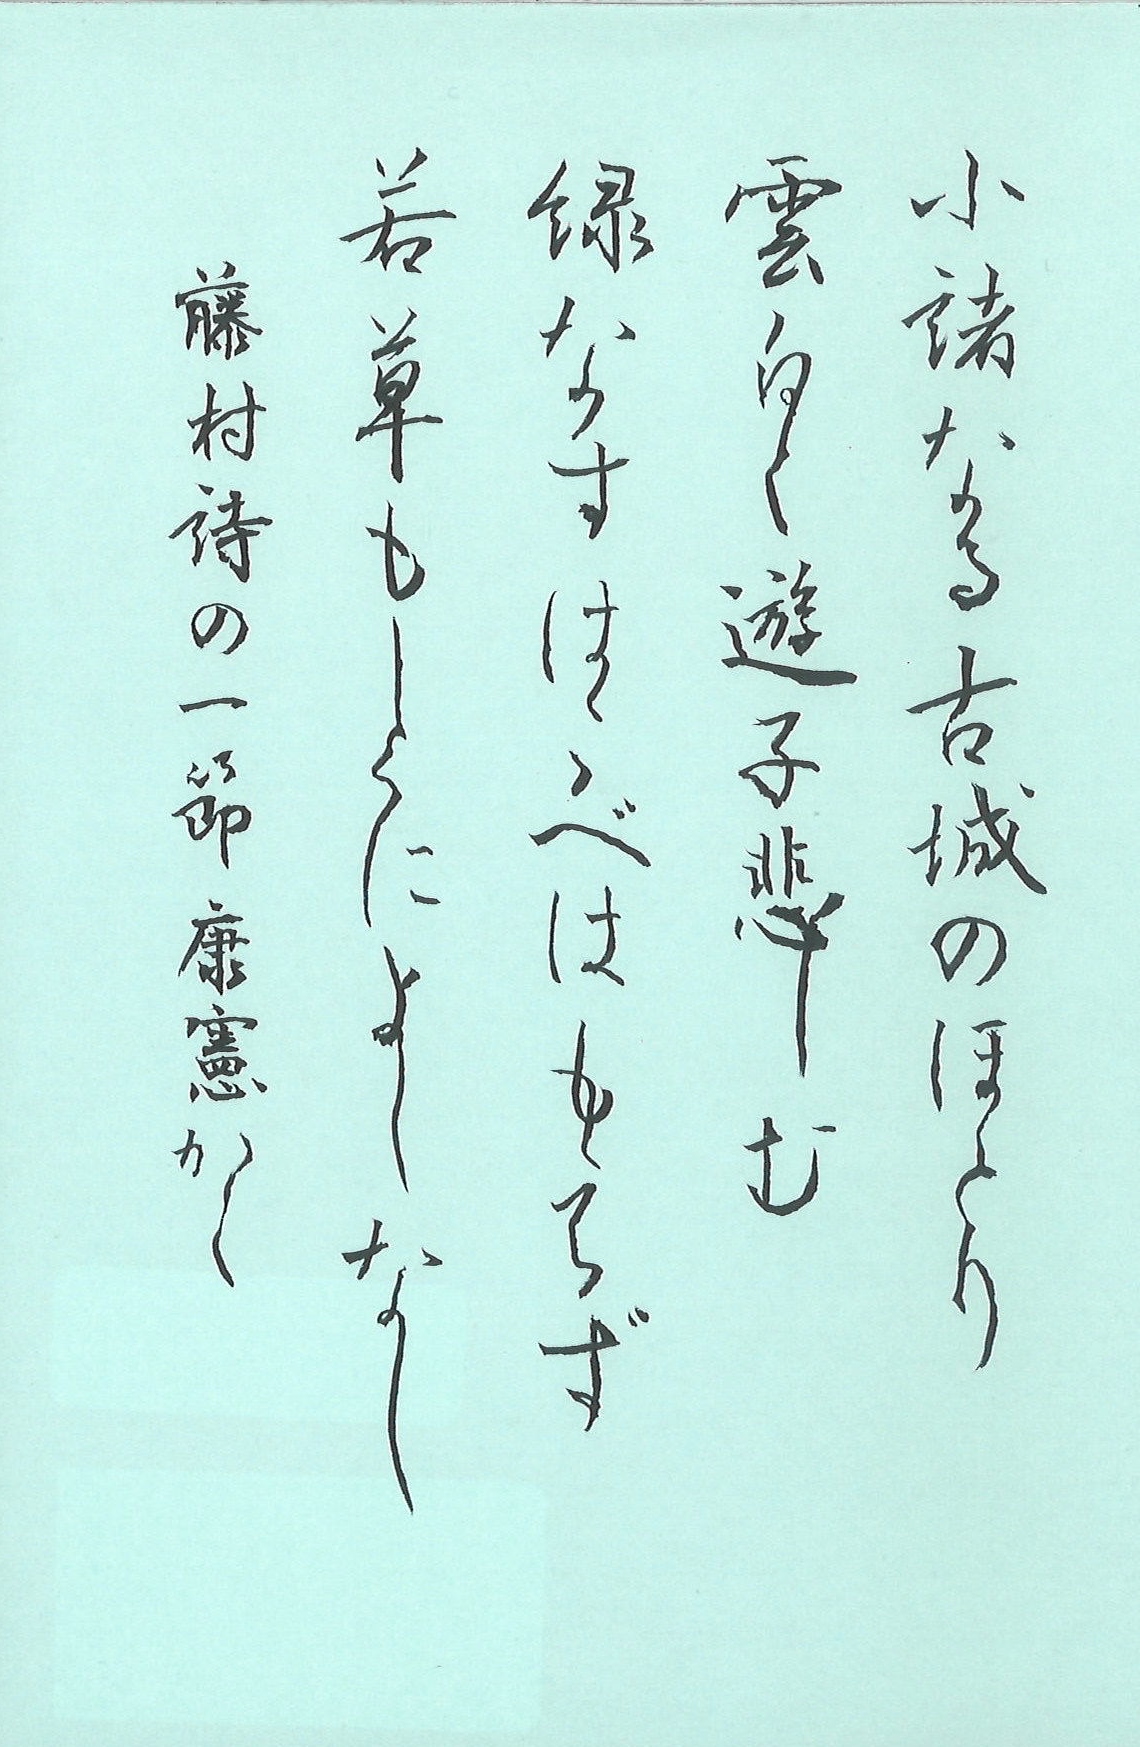 小諸なる古城のほとり
雲白く遊子悲しむ
緑なすはゝべはもえず
若草もしくによしなし
藤村詩の一節 康憲かく